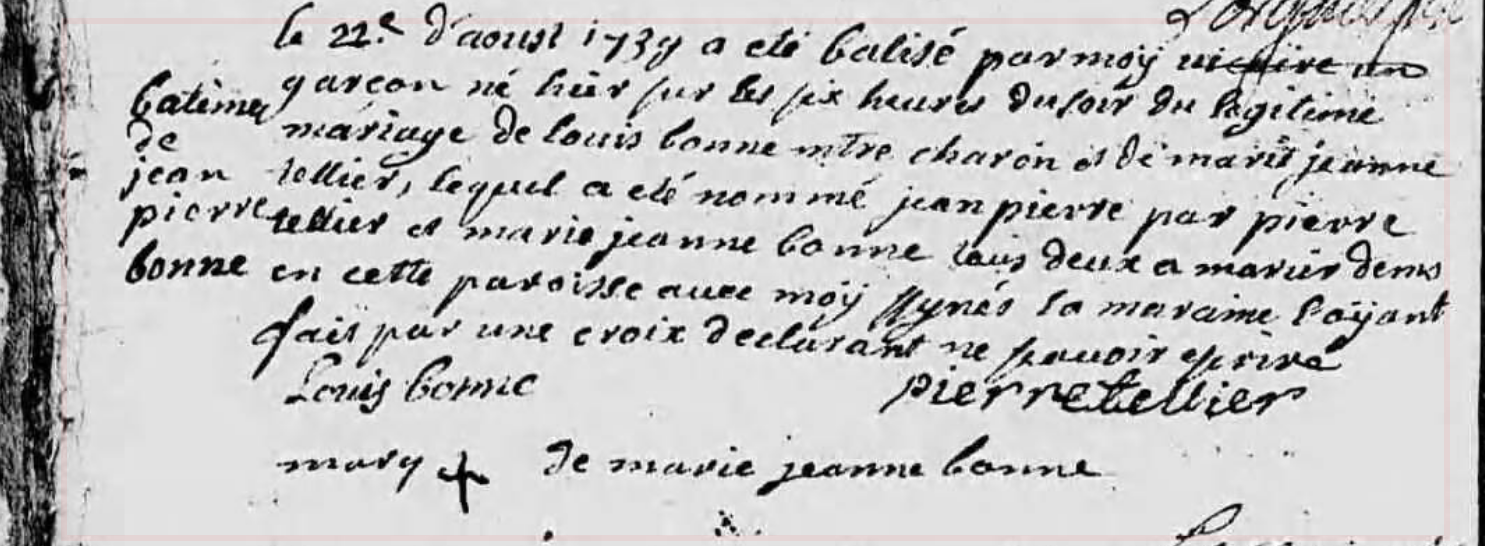 le 22.e d'aoust 1739 a eté batisé par moÿ vicaire un
garcon né hier sur les six heures du soir du legitime
mariage de louis bonne mtre charon et de marie jeanne
tellier, lequel a eté nommé jean pierre par pierre
tellier et marie jeanne bonne tous deux a marier dems
en cette paroisse avec moÿ ssignés la maraine l'aÿant
fait par une croix declarant ne pouvoir ecrire
batême
de
jean
pierre
bonne
Louis bonne
pierre tellier
marq + de marie jeanne bonne